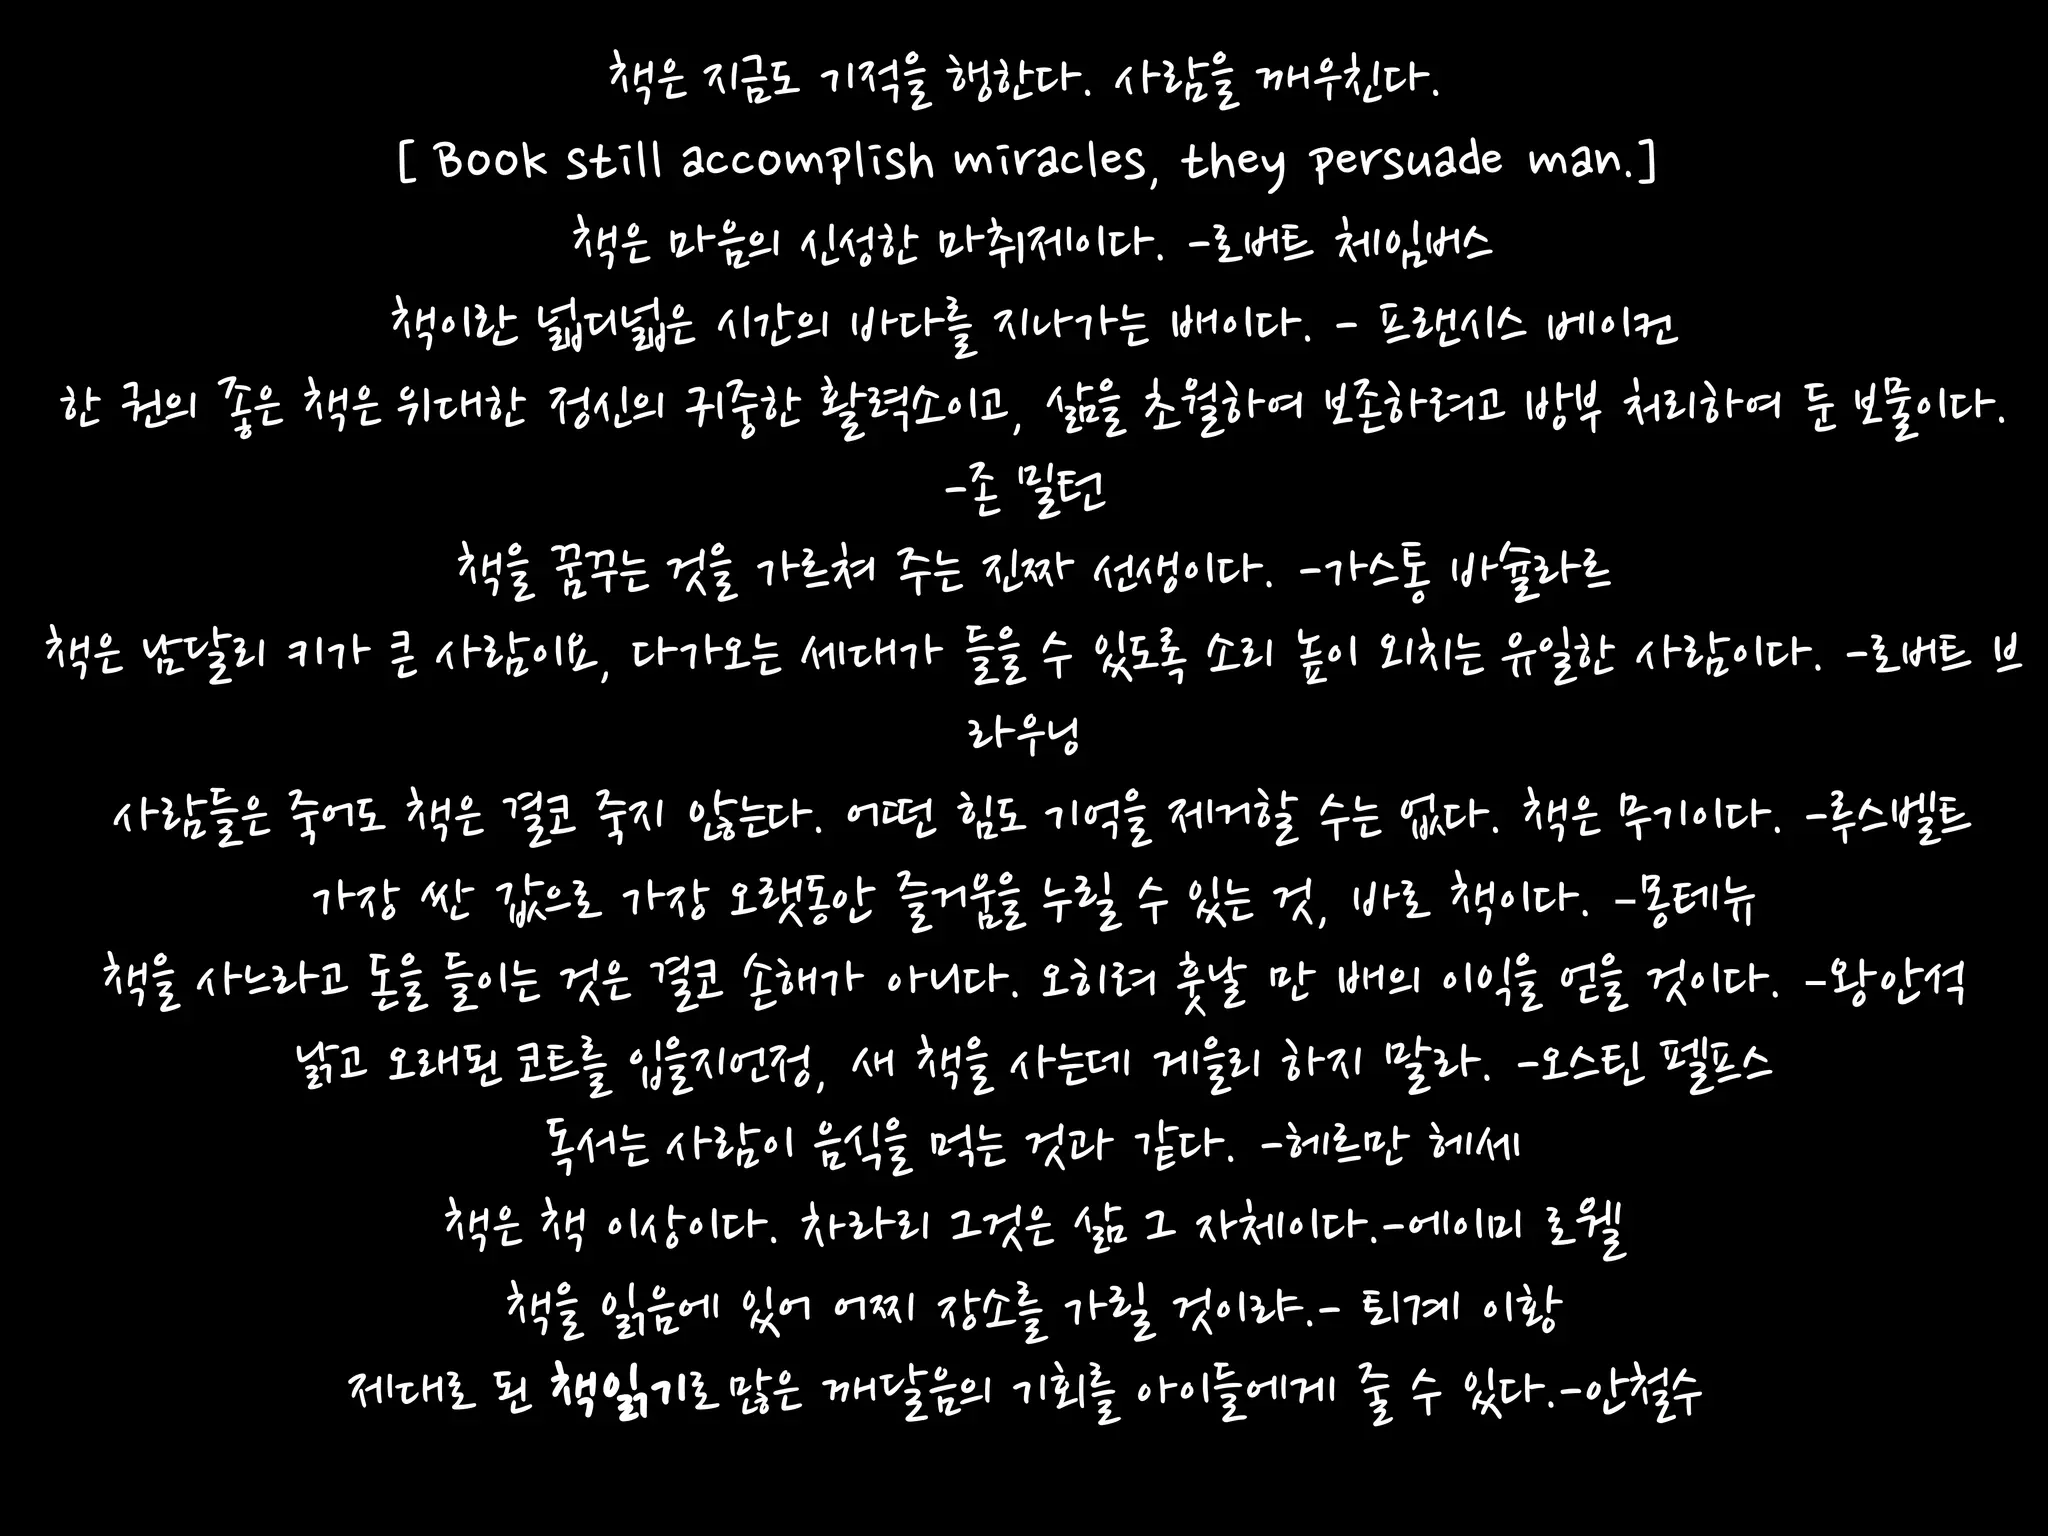 책은 지금도 기적을 행한다. 사람을 깨우친다.
[ Book still accomplish miracles, they persuade man.]
책은 마음의 신성한 마취제이다. -로버트 체임버스
책이란 넓디넓은 시간의 바다를 지나가는 배이다. - 프랜시스 베이컨
한 권의 좋은 책은 위대한 정신의 귀중한 활력소이고, 삶을 초월하여 보존하려고 방부 처리하여 둔 보물이다.
-존 밀턴
책을 꿈꾸는 것을 가르쳐 주는 진짜 선생이다. -가스통 바슐라르
책은 남달리 키가 큰 사람이요, 다가오는 세대가 들을 수 있도록 소리 높이 외치는 유일한 사람이다. -로버트 브
라우닝
사람들은 죽어도 책은 결코 죽지 않는다. 어떤 힘도 기억을 제거할 수는 없다. 책은 무기이다. -루스벨트
가장 싼 값으로 가장 오랫동안 즐거움을 누릴 수 있는 것, 바로 책이다. -몽테뉴
책을 사느라고 돈을 들이는 것은 결코 손해가 아니다. 오히려 훗날 만 배의 이익을 얻을 것이다. -왕안석
낡고 오래된 코트를 입을지언정, 새 책을 사는데 게을리 하지 말라. -오스틴 펠프스
독서는 사람이 음식을 먹는 것과 같다. -헤르만 헤세
책은 책 이상이다. 차라리 그것은 삶 그 자체이다.-에이미 로웰
책을 읽음에 있어 어찌 장소를 가릴 것이랴.- 퇴계 이황
제대로 된 책읽기로 많은 깨달음의 기회를 아이들에게 줄 수 있다.-안철수